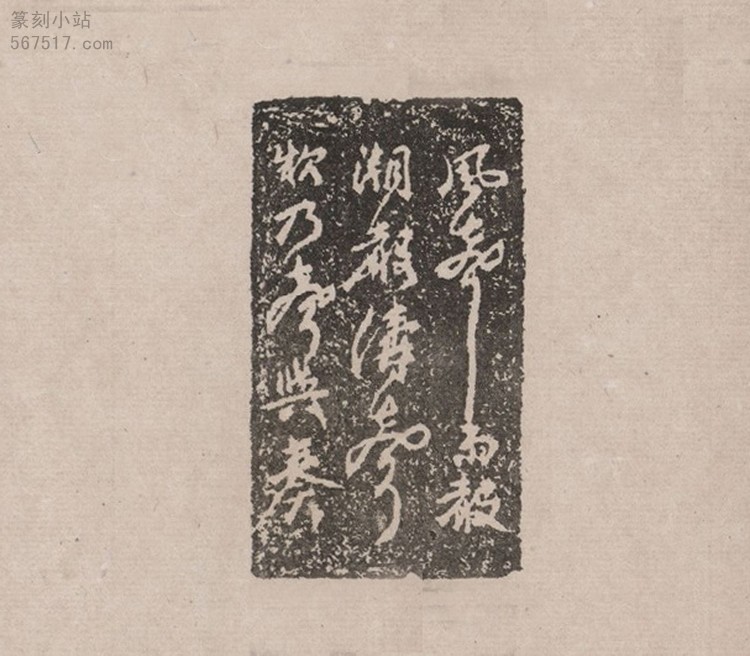 篆刻小站
567517.com
風聲雨聲
潮聲濤聲
欸乃聲與奏